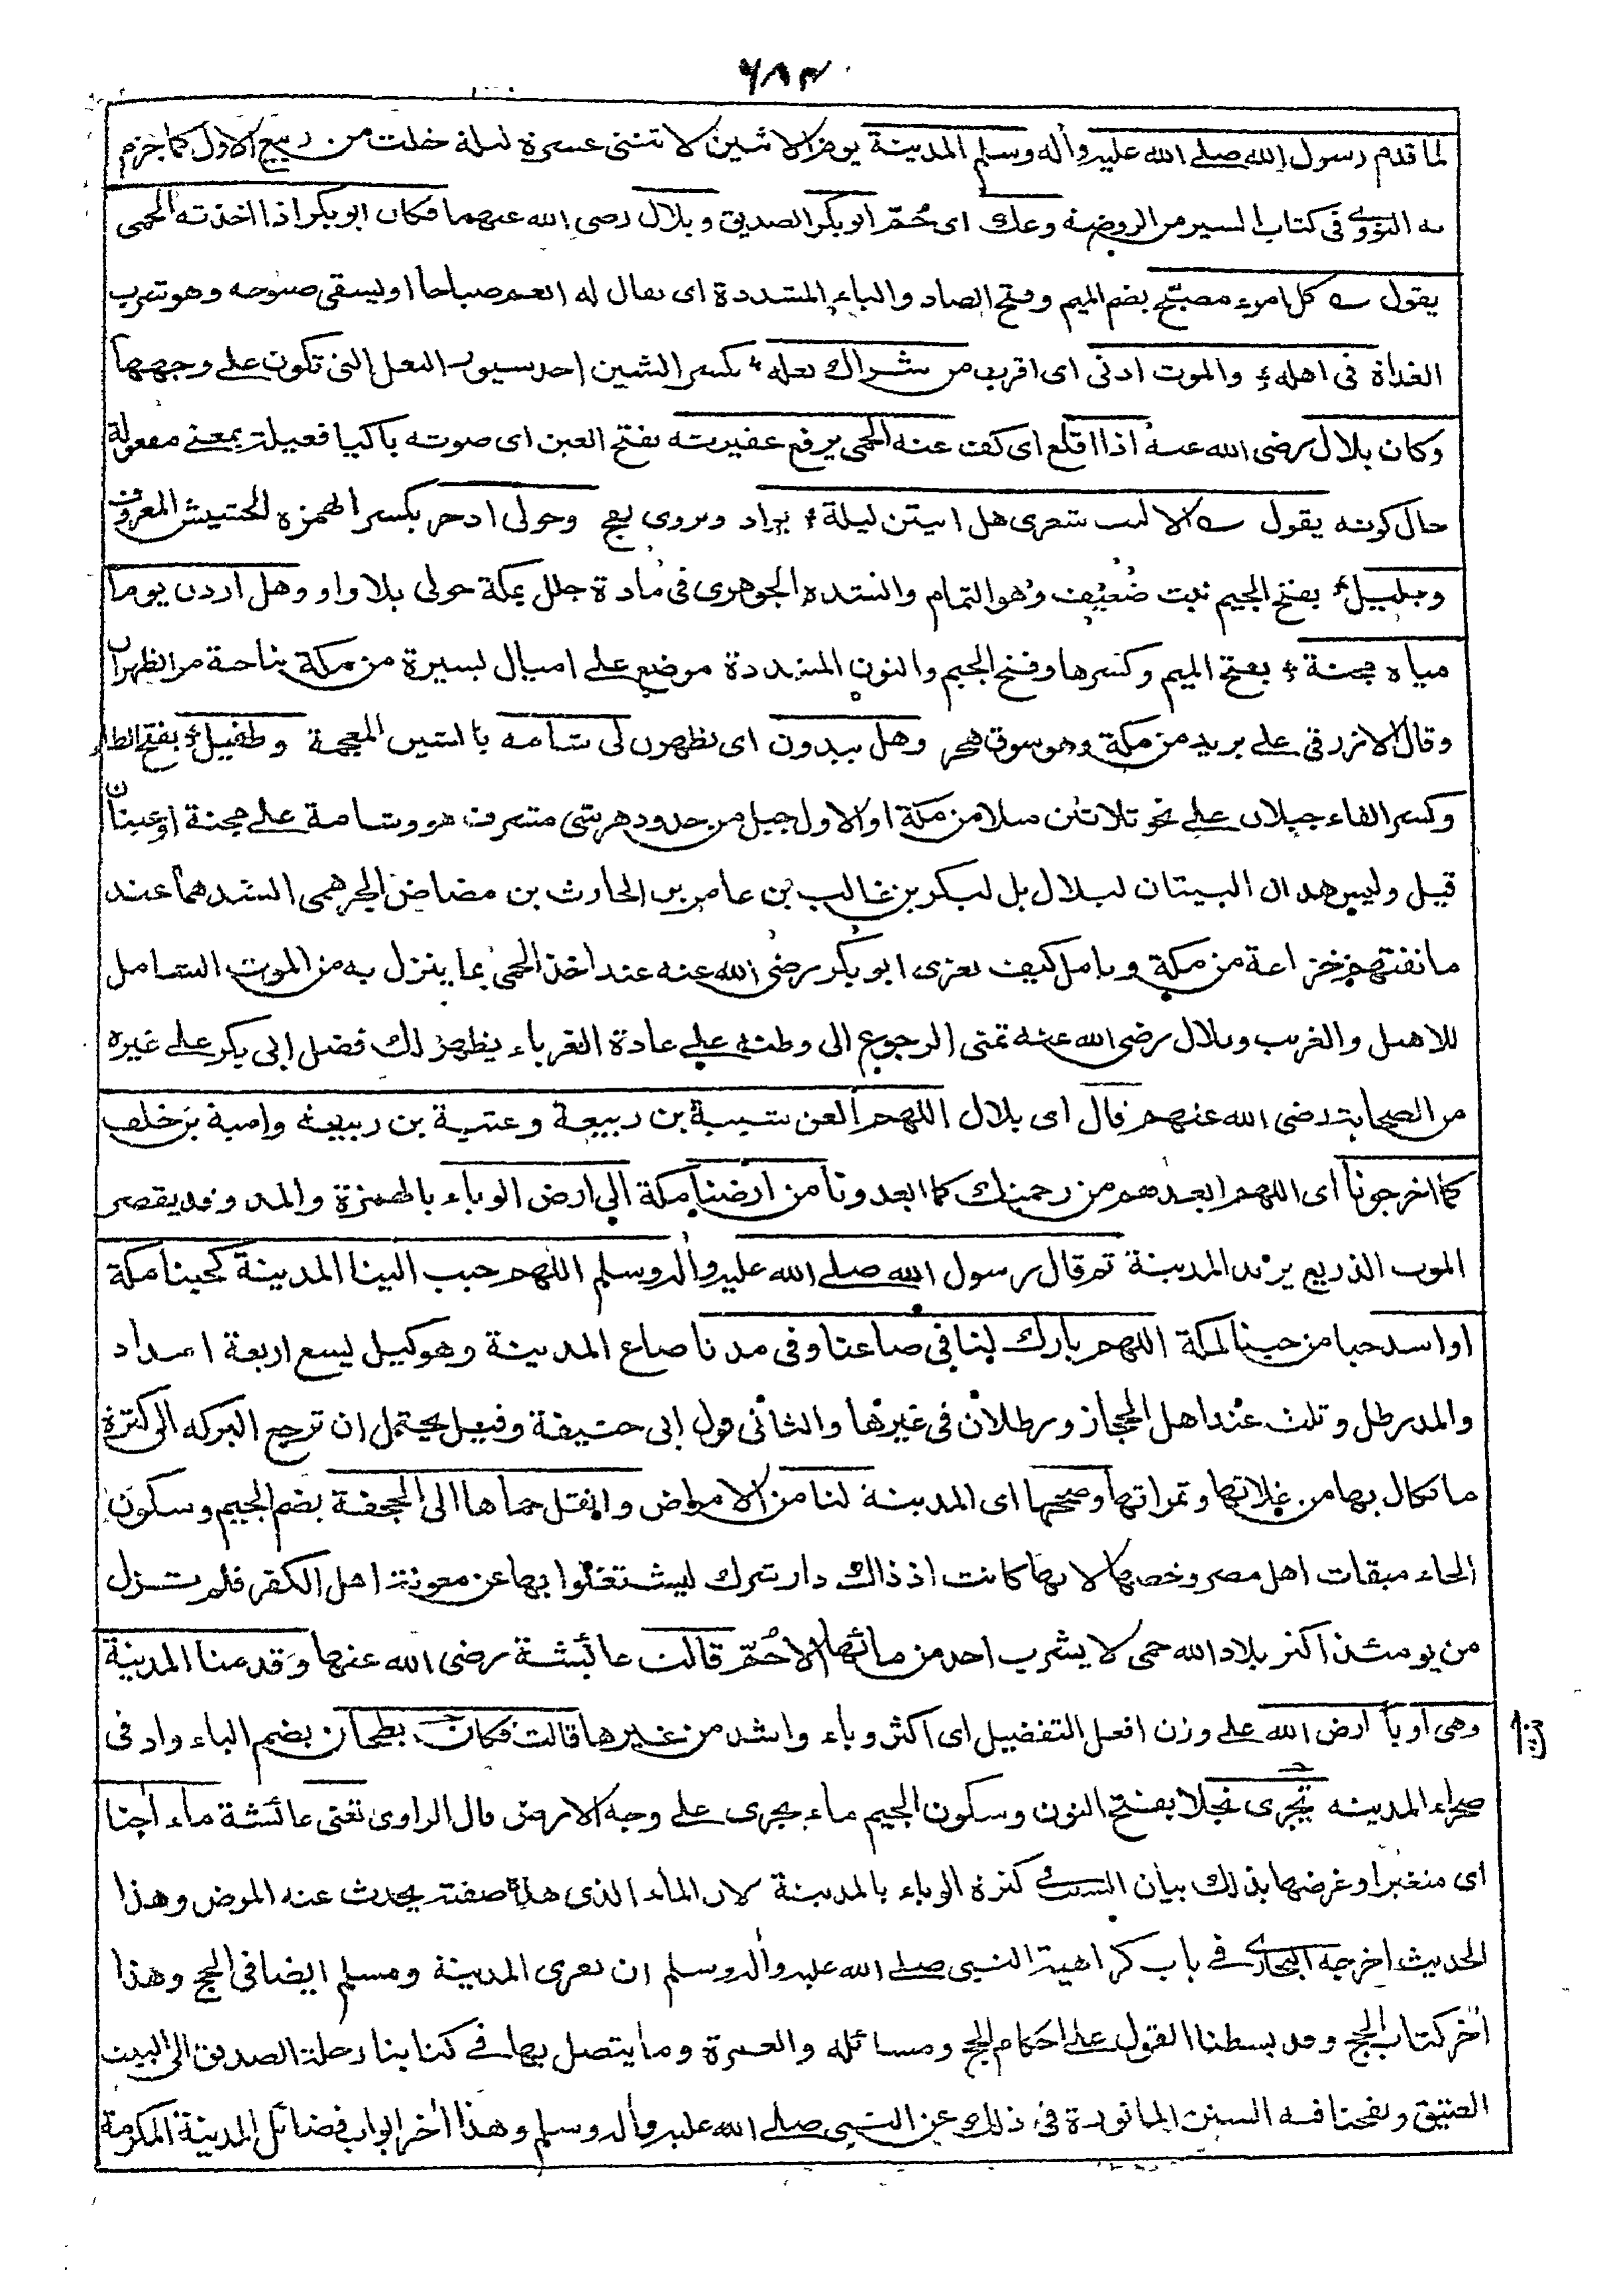 ٦٨٣
لما قدم رسول الله صلے الله عليه وأله وسلم المدينة يوم الاثنين لاثنتى عشرة ليلة خلت من ربيع الاول كما جزم
به النووى فى كتاب السير من الروضة وعك اى حُمّ ابو بكر الصديق و بلال رضى الله عنهما فكان ابو بكر اذا اخذته الحمى
يقول كل امرء مصبّح بضم الميم وفتح الصاد والباء المشددة اى يقال له انعم صباحا او يسقى صبوحه وهو شرب
الغداة فى اهله والموت ادنى اى اقرب من شراك نعله بكسر الشين احد سيور النعل التى تكون على وجهها
وكان بلال رضى الله عنه اذا اقلع اى كفت عنه الحمى يرفع عقيرته بفتح العين اى صوته باكيا فعيلة بمعنے مفعولة
حال كونه يقول الا ليت شعرى هل ابيتن ليلة بواد ويروى بفج وحولى اذخر بكسر الهمزه الحشيش المعروف
وجليل بفتح الجيم نبت ضعيف وهو الثمام وانشده الجوهرى فى مادة جلل بمكة حولى بلا واو وهل اردن يوما
مياه مجنة بفتح الميم وكسرها وفتح الجيم والنون المشددة موضع على اميال يسيرة من مكة بناحية مر الظهران
وقال الازرقى على بريد من مكة وهو سوق هجر وهل يبدون اى يظهرن لى شامه بالشين المعجمة وطفيل بفتح الطاء
وكسر الفاء جبلان على نحو ثلاثين ميلا من مكة او الاول جبل من حدود هرشى مشرف هو وشامة على مجنة او عينان
قيل وليس هذان البيتان لبلال بل لبكر بن غالب بن عامر بن الحارث بن مضاض الجرهمى انشدهما عند
ما نفتهم خزاعة من مكة وتامل كيف تعزى ابو بكر رضى الله عنه عند اخذ الحمى بما ينزل به من الموت الشامل
للاهل والغريب وبلال رضى الله عنه تمنى الرجوع الى وطنه على عادة الغرباء يظهر لك فضل ابى بكر على غيره
من الصحابة رضى الله عنهم قال اى بلال اللهم العن شيبة بن ربيعة وعتبة بن ربيعة وامية بن خلف
كما اخرجونا اى اللهم ابعدهم من رحمتك كما ابعدونا من ارضنا مكة الى ارض الوباء بالهمزة والمد وقد يقصر
الموت الذريع يريد المدينة ثم قال رسول الله صلے الله عليه وأله وسلم اللهم حبب الينا المدينة كحبنا مكة
او اشد حبا من حبنا لمكة اللهم بارك لنا فى صاعنا وفى مدنا صاع المدينة وهو كيل يسع اربعة امداد
والمد رطل وثلث عند اهل الحجاز ورطلان فى غيرها والثانى قول ابى حنيفة وقيل يحتمل ان ترجع البركه الى كثرة
ما تكال بها من غلاتها وثمراتها وصححها اى المدينة لنا من الامراض وانقل حماها الى الجحفة بضم الجيم وسكون
الحاء ميقات اهل مصر وخصها لانها كانت اذ ذاك دار شرك ليشتغلوا بها عن معونة اهل الكفر فلم تزل
من يومئذ اكثر بلاد الله حمى لا يشرب احد من مائها الا حُمّ قالت عائشة رضى الله عنها وقدمنا المدينة
وهى اوبأ ارض الله على وزن افعل التفضيل اى اكثر وباء واشد من غيرها قالت فكان بطحان بضم الباء واد فى
صحراء المدينه تجرى نجلا بفتح النون وسكون الجيم ماء يجرى على وجه الارض قال الراوى تعنى عائشة ماء أجنا
اى متغيرا وغرضها بذلك بيان السبب فى كثرة الوباء بالمدينة لان الماء الذى هذه صفته يحدث عنه المرض وهذا
الحديث اخرجه البخارى فى باب كراهية النبى صلے الله عليه وأله وسلم ان تعرى المدينة ومسلم ايضا فى الحج وهذا
أخر كتاب الحج وقد بسطنا القول على احكام الحج ومسائله والعمرة وما يتصل بها فى كتابنا رحلة الصديق الى البيت
العتيق ونقحنا فيه السنن الماثورة فى ذلك عن النبى صلے الله عليه وأله وسلم وهذا أخر ابواب فضائل المدينة المكرمة